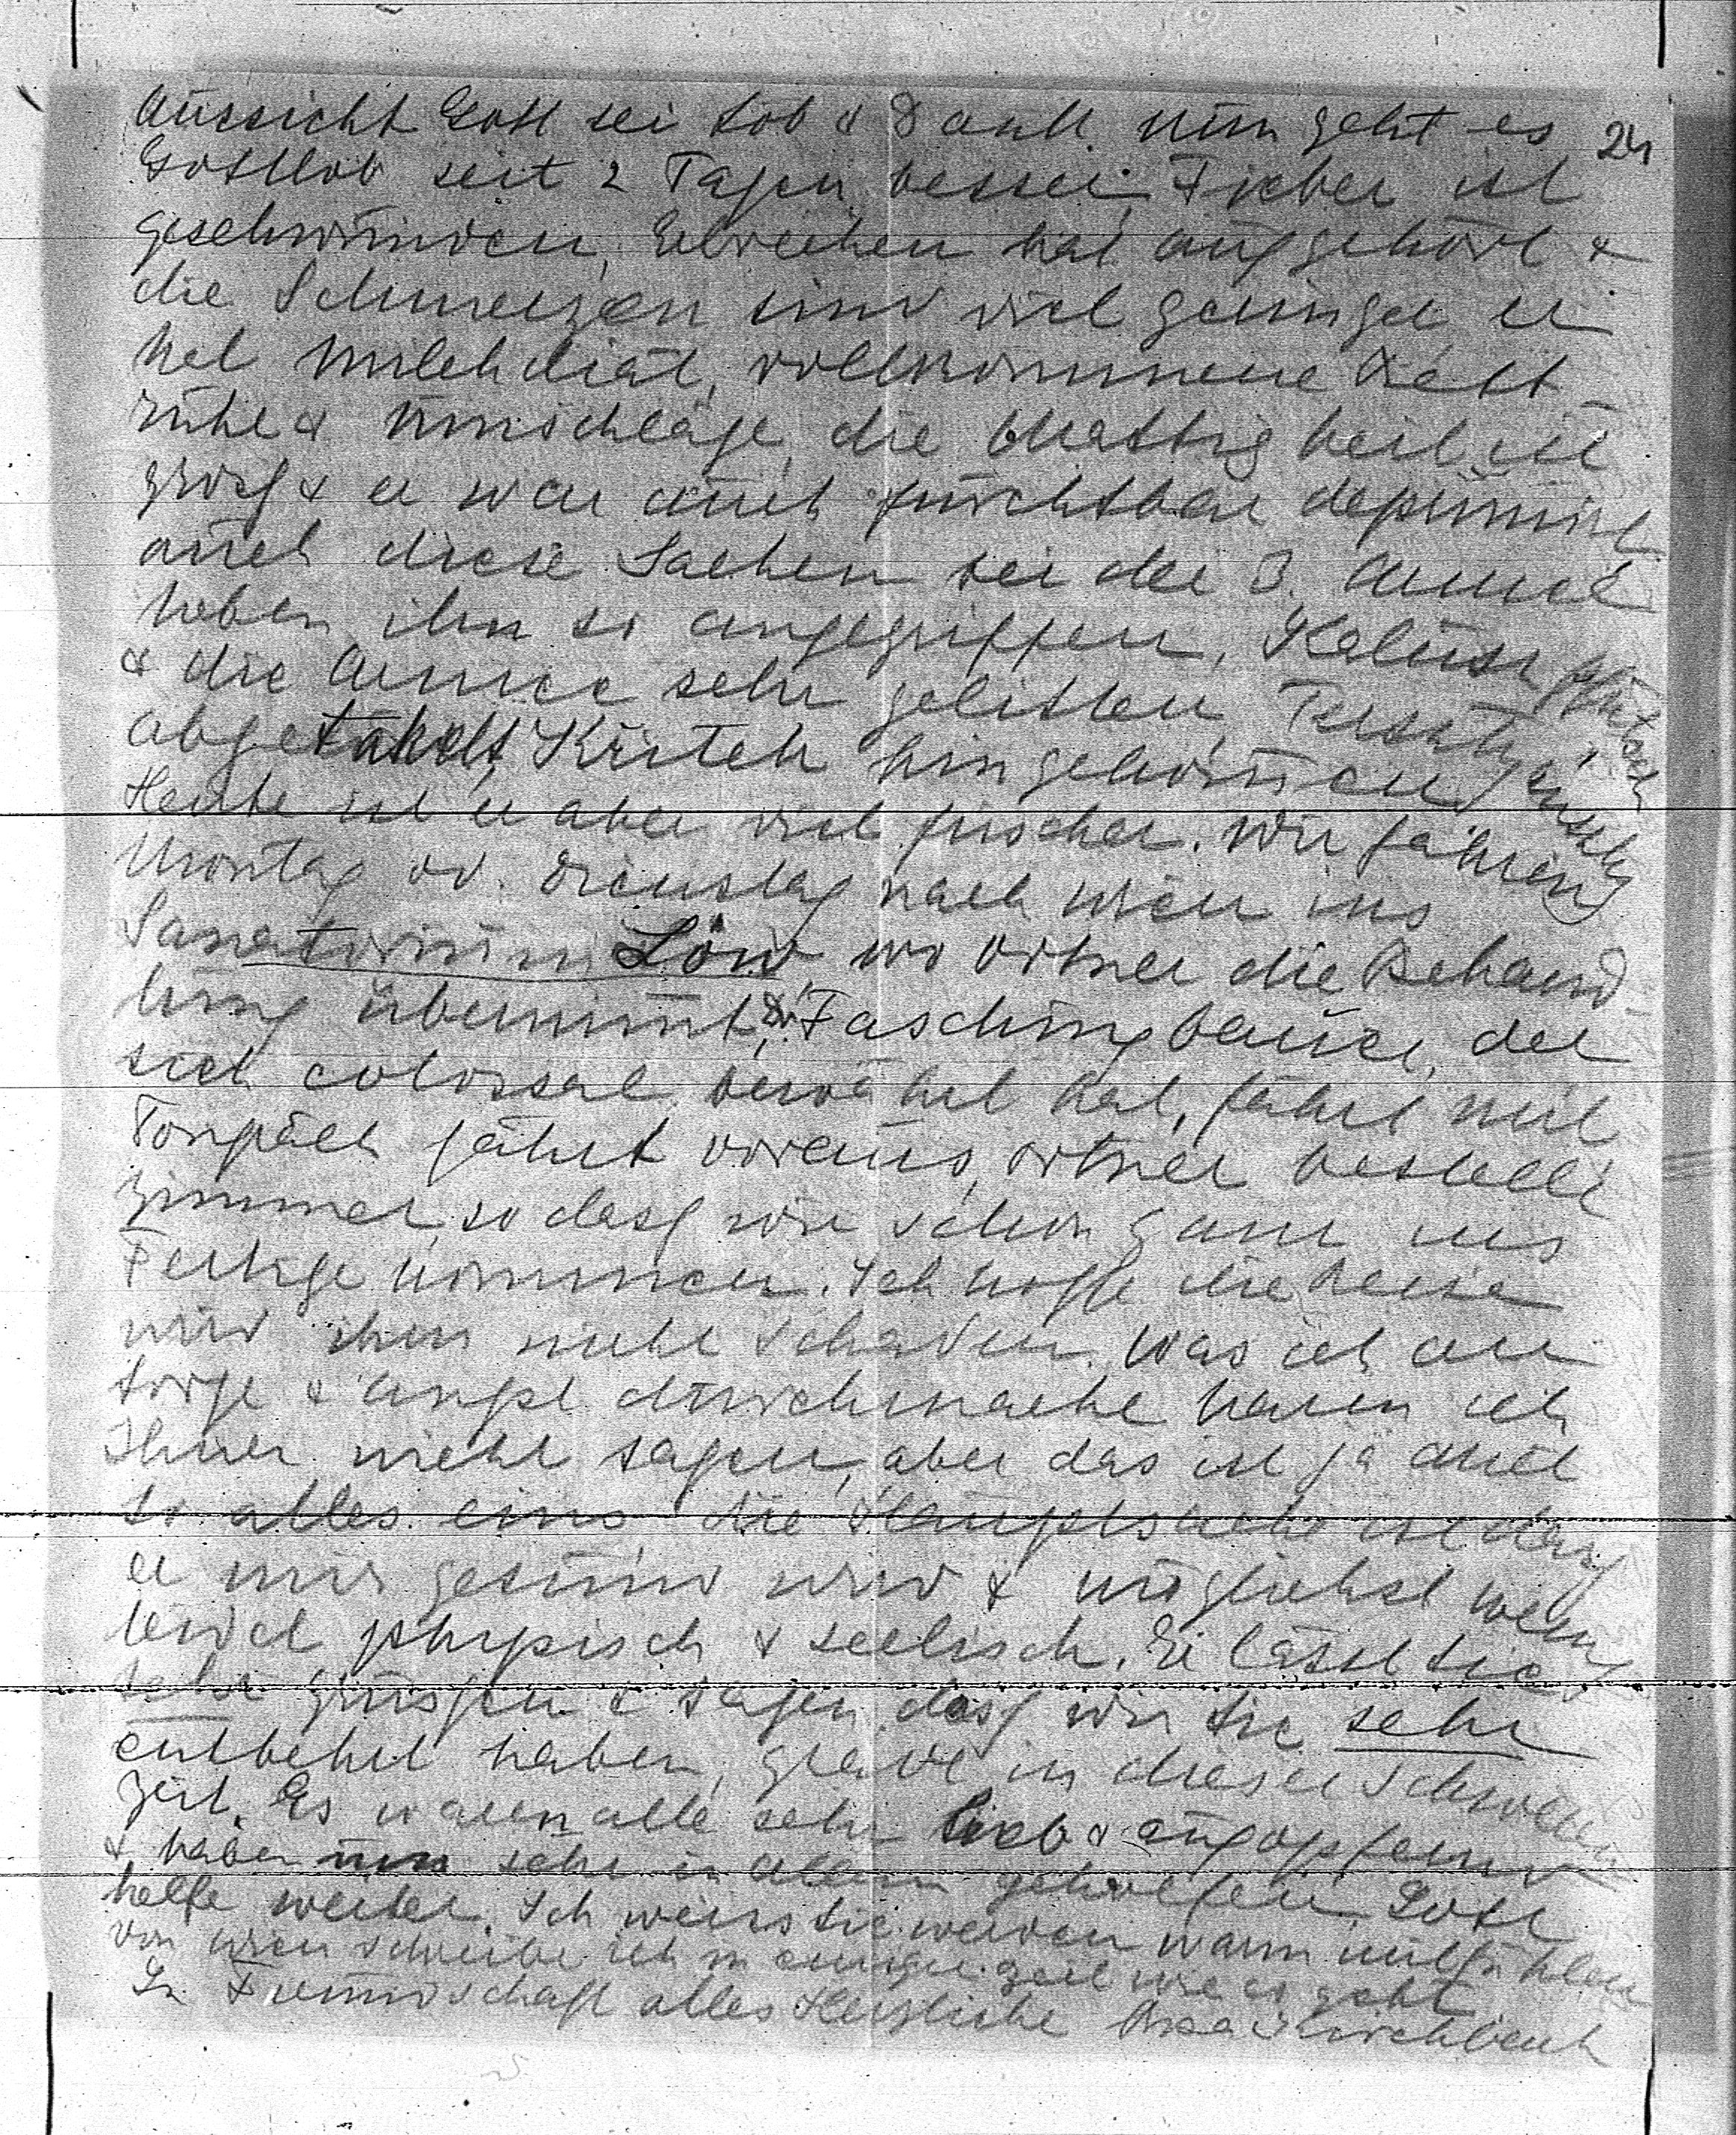 24
Aussicht Gott sei Lob & Dank. Nun geht es
Gottlob seit 2 Tagen besser, Fieber ist
geschwunden, Erbrechen hat aufgehört &
die Schmerzen sind viel geringer er
hat Milchdiät, vollkommene Bett
ruhe & Umschläge, die Mattigkeit ist
gross & er war auch furchtbar deprimirt
auch diese Sachen bei der 3. Armee
haben ihn so angegriffen, Kalusz
& die Armee sehr gelitten, Tersztyánszky
abgetakelt, Kritek hingekommen
Heute ist er aber viel frischer. Wir fahren
Montag od. Dienstag nach Wien ins
Sanatorium Löw, wo Ortner die Behand
lung übernimmt, Dr Faschingbauer, der
sich colossal bewährt hat, fährt mit
fährt voraus, Ortner bestellt
Zimmer, so dass wir schon ganz ins
Fertige kommen. Ich hoffe die Reise
wird ihm nicht schaden. Was ich an
Sorge & Angst durchmache kann ich
Ihnen nicht sagen, aber das ist ja auch
so alles eins die Hauptsache ist dass
er mir gesund wird & möglichst wenig
leidet physisch & seelisch. Er lässt Sie
sehr grüssen & sagen, dass wir Sie sehr
entbehrt haben, grade in dieser schweren
Zeit. Es waren alle sehr lieb & aufopfernd
& haben uns sehr in allem geholfen. Gott
helfe weiter. Ich weiss Sie werden warm mitfühlen
von Wien schreibe ich in einiger Zeit wie es geht
In Freundschaft alles Herzliche Kirchbach